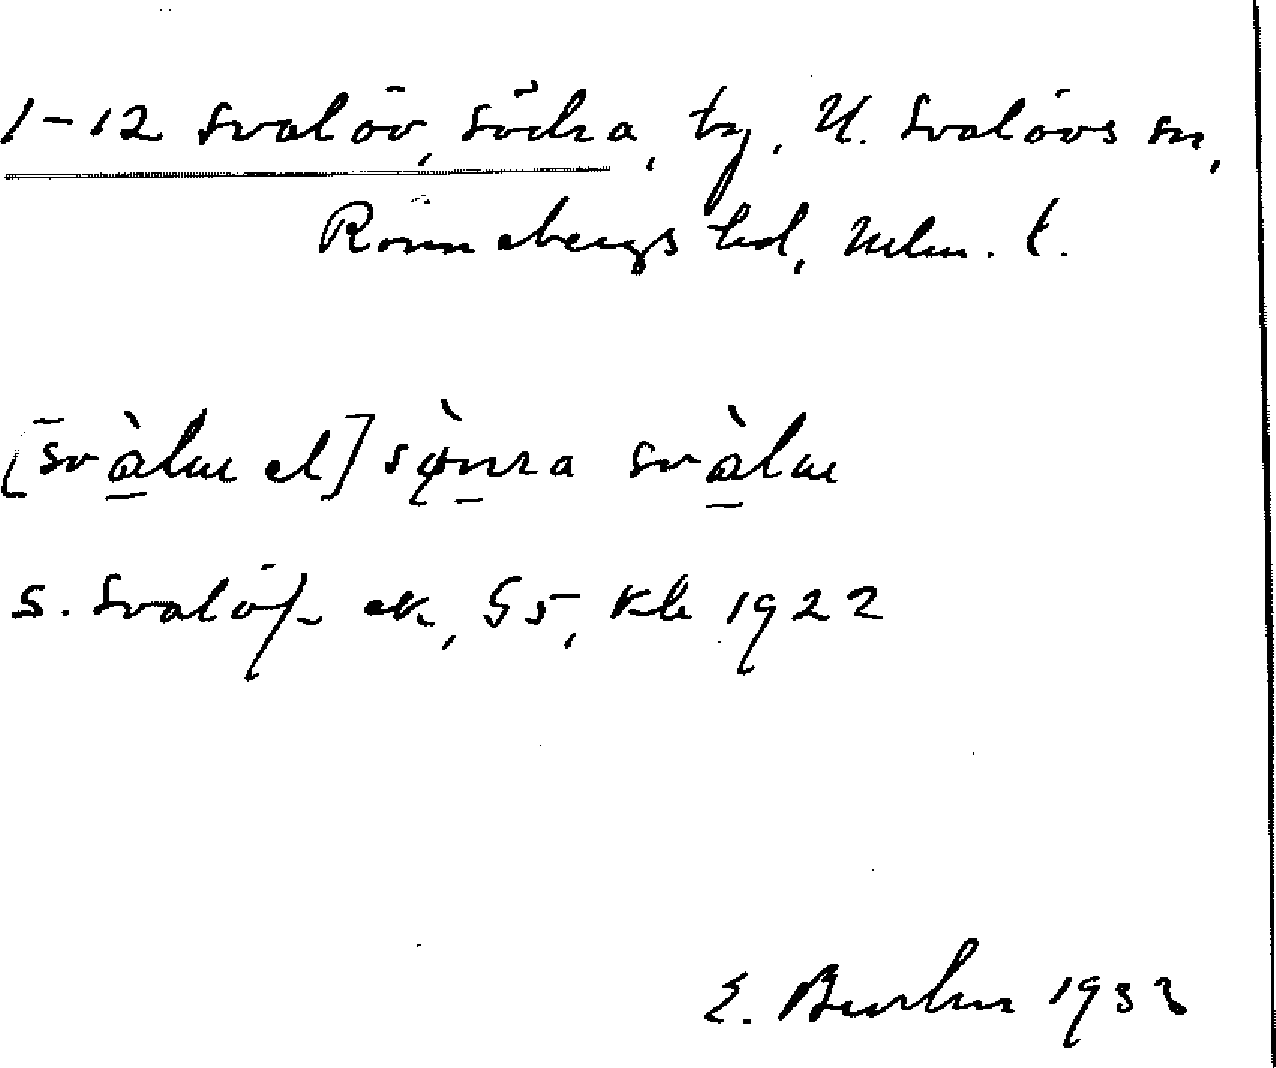 1-12 Svalöv, Södra, by, N. Svalövs sn,
Rönnebergs hd, Mlm. l.
[svàlue el] sønra svàlue
S. Svalöf ek, §5, Kb 1922
E. 1932